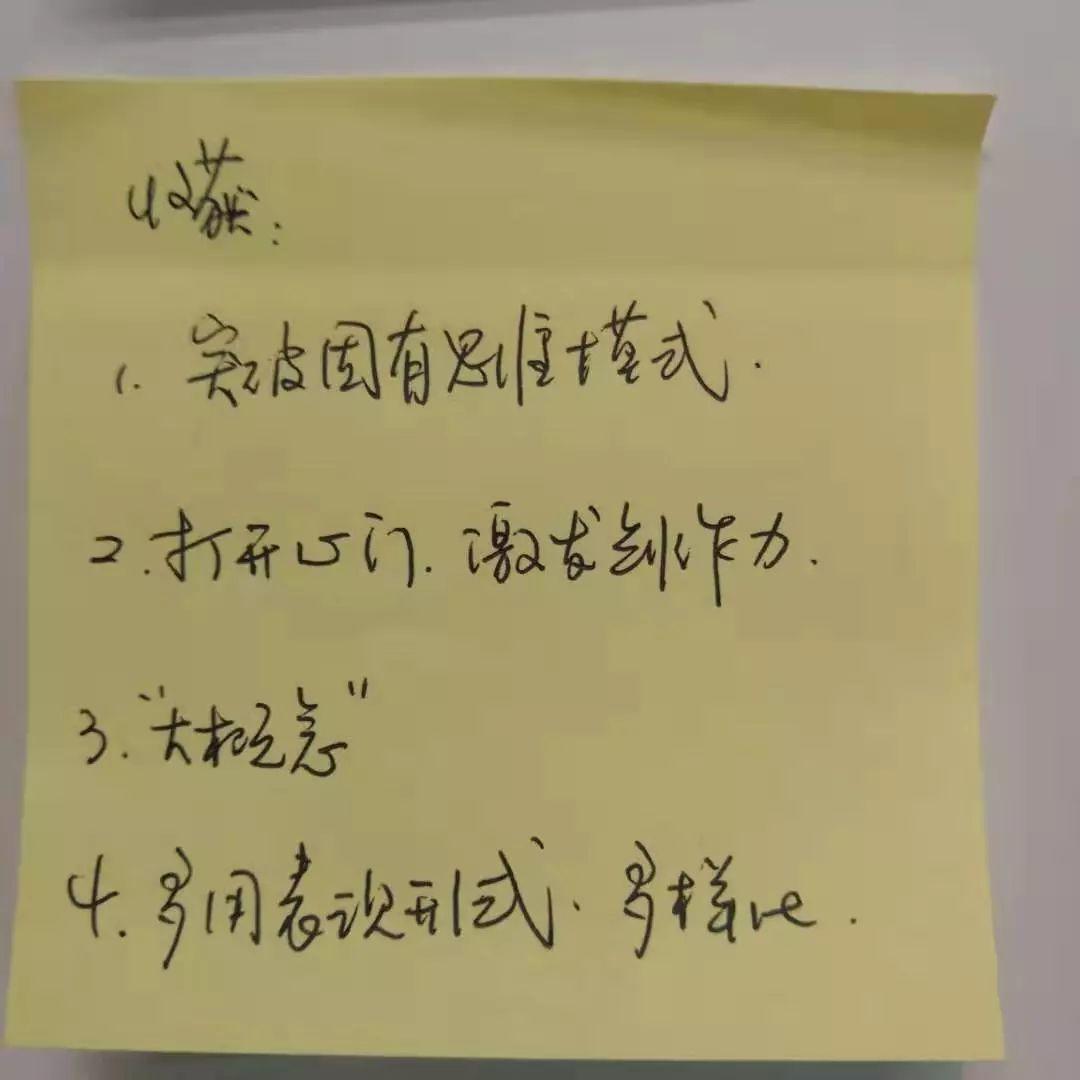 收获:
1. 突破固有思维模式.
2. 打开心门. 激发创作力.
3. “大概念”
4. 多用表现形式. 多样化.